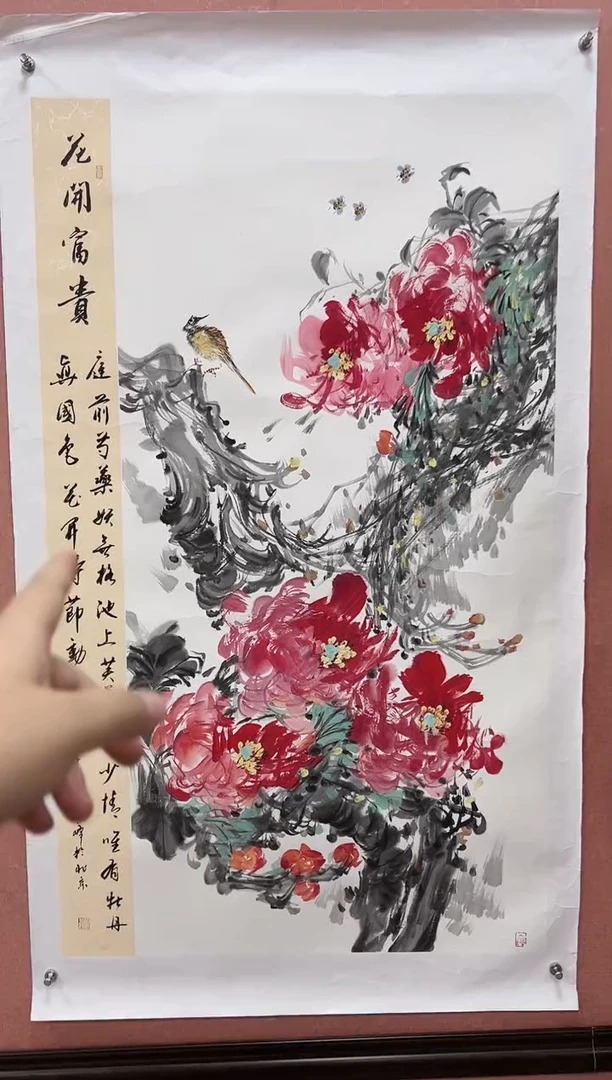 花開富貴
庭前芍藥妖無格池上芙
少情唯有牡丹
真國色花開時節動
峰於北京